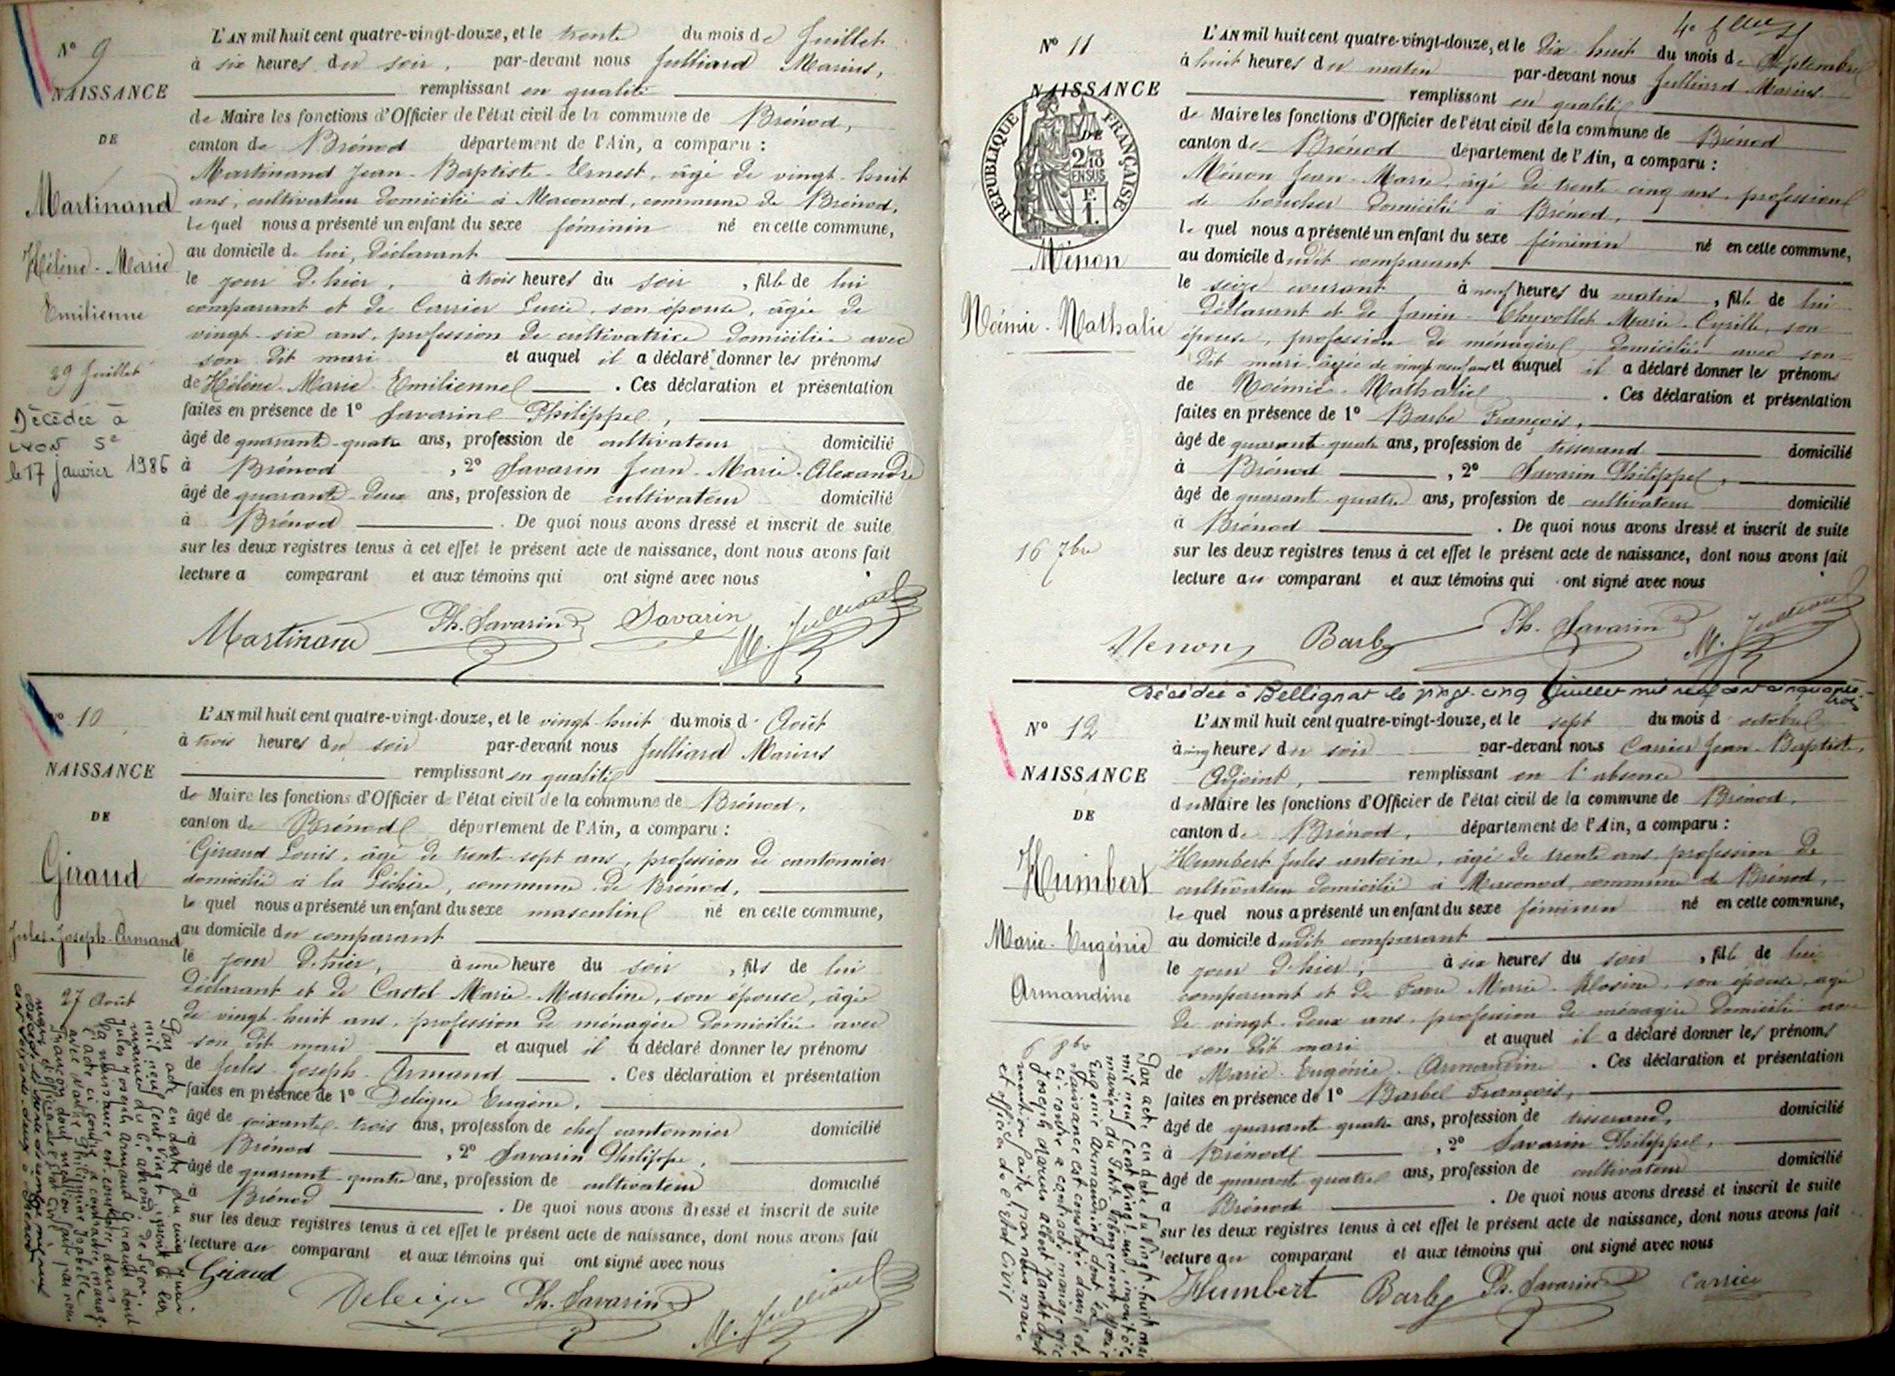 N° 9
NAISSANCE
DE
Martinand
Hélène-Marie
Emilienne
29 Juillet
Décédée à
Lyon 5e
le 17 janvier 1986
L'AN mil huit cent quatre-vingt-douze, et le trente du mois de Juillet
à six heures du soir, par-devant nous Julliard Marius,
remplissant en qualité
de Maire les fonctions d'Officier de l'état civil de la commune de Brénod,
canton de Brénod département de l'Ain, a comparu :
Martinand Jean-Baptiste-Ernest, âgé de vingt-huit
ans, cultivateur domicilié à Maconod, commune de Brénod,
lequel nous a présenté un enfant du sexe féminin né en cette commune,
au domicile de lui, déclarant
le jour d'hier, à trois heures du soir, fille de lui
comparant et de Carrier Lucie, son épouse, âgée de
vingt-six ans, profession de cultivatrice domiciliée avec
son dit mari et auquel il a déclaré donner les prénoms
de Hélène-Marie Emilienne. Ces déclaration et présentation
faites en présence de 1° Savarin Philippe,
âgé de quarante-quatre ans, profession de cultivateur domicilié
à Brénod, 2° Savarin Jean-Marie-Alexandre
âgé de quarante-deux ans, profession de cultivateur domicilié
à Brénod. De quoi nous avons dressé et inscrit de suite
sur les deux registres tenus à cet effet le présent acte de naissance, dont nous avons fait
lecture a comparant et aux témoins qui ont signé avec nous
Martinand Ph. Savarin Savarin M. Julliard
N° 10
NAISSANCE
DE
Giraud
Jules-Joseph-Armand
27 Août
L'AN mil huit cent quatre-vingt-douze, et le vingt-huit du mois d'Août
à trois heures du soir par-devant nous Julliard Marius
remplissant en qualité
de Maire les fonctions d'Officier de l'état civil de la commune de Brénod,
canton de Brénod département de l'Ain, a comparu :
Giraud Louis, âgé de trente-sept ans, profession de cantonnier
domicilié à la Léchère, commune de Brénod,
lequel nous a présenté un enfant du sexe masculin né en cette commune,
au domicile du comparant
le jour d'hier, à une heure du soir, fils de lui
déclarant et de Castel Marie-Marceline, son épouse, âgée
de vingt-huit ans, profession de ménagère domiciliée avec
son dit mari et auquel il a déclaré donner les prénoms
de Jules-Joseph-Armand. Ces déclaration et présentation
faites en présence de 1° Eugène,
âgé de soixante-trois ans, profession de chef cantonnier domicilié
à Brénod, 2° Savarin Philippe,
âgé de quarante-quatre ans, profession de cultivateur domicilié
à Brénod. De quoi nous avons dressé et inscrit de suite
sur les deux registres tenus à cet effet le présent acte de naissance, dont nous avons fait
lecture au comparant et aux témoins qui ont signé avec nous
Giraud
Ph. Savarin M. Julliard
Par acte en date du cinq
mil neuf cent vingt
Jules Joseph Armand Giraud dont
la naissance est constatée dans
l'acte ci contre a contracté mariage
avec
dont mention faite par nous
N° 11
NAISSANCE
DE
RÉPUBLIQUE FRANÇAISE
2/10 EN SUS
F.
1.
Ménon
Noémie-Nathalie
16 7bre
L'AN mil huit cent quatre-vingt-douze, et le dix-huit du mois de Septembre
à huit heures du matin par-devant nous Julliard Marius
remplissant en qualité
de Maire les fonctions d'Officier de l'état civil de la commune de Brénod
canton de Brénod département de l'Ain, a comparu :
Ménon Jean-Marie, âgé de trente-cinq ans, profession
de boucher domicilié à Brénod,
lequel nous a présenté un enfant du sexe féminin né en cette commune,
au domicile dudit comparant
le seize courant à neuf heures du matin, fille de lui
déclarant et de Janin-Marie-Cyrille, son
épouse, profession de ménagère domiciliée avec son
dit mari âgée de vingt neuf ans et auquel il a déclaré donner les prénoms
de Noémie-Nathalie. Ces déclaration et présentation
faites en présence de 1° Barbe François,
âgé de quarante-quatre ans, profession de tisserand domicilié
à Brénod, 2° Savarin Philippe,
âgé de quarante-quatre ans, profession de cultivateur domicilié
à Brénod. De quoi nous avons dressé et inscrit de suite
sur les deux registres tenus à cet effet le présent acte de naissance, dont nous avons fait
lecture au comparant et aux témoins qui ont signé avec nous
Menon Barbe Ph. Savarin M. Julliard
Décédée à Bellignat le vingt-cinq Juillet mil neuf cent cinquante
trois
N° 12
NAISSANCE
DE
Humbert
Marie-Eugénie
Armandine
6 8bre
L'AN mil huit cent quatre-vingt-douze, et le sept du mois d'octobre
à cinq heures du soir par-devant nous Carrier Jean-Baptiste,
Adjoint, remplissant en l'absence
du Maire les fonctions d'Officier de l'état civil de la commune de Brénod,
canton de Brénod, département de l'Ain, a comparu :
Humbert Jules Antoine, âgé de trente ans, profession de
cultivateur domicilié à Maconod, commune de Brénod,
lequel nous a présenté un enfant du sexe féminin né en cette commune,
au domicile dudit comparant
le jour d'hier, à six heures du soir, fille de lui
comparant et de Favre Marie-Philosine, son épouse, âgée
de vingt-deux ans, profession de ménagère domiciliée avec
son dit mari et auquel il a déclaré donner les prénoms
de Marie-Eugénie-Armandine. Ces déclaration et présentation
faites en présence de 1° Barbe François,
âgé de quarante quatre ans, profession de tisserand, domicilié
à Brénod, 2° Savarin Philippe,
âgé de quarante quatre ans, profession de cultivateur domicilié
à Brénod. De quoi nous avons dressé et inscrit de suite
sur les deux registres tenus à cet effet le présent acte de naissance, dont nous avons fait
lecture au comparant et aux témoins qui ont signé avec nous
Humbert Barbe Ph. Savarin Carrier
Par acte en date du vingt-huit mai
mil neuf cent vingt
mairie du Petit Abergement, Marie
Eugénie Armandine dont la
naissance est constatée dans l'acte
ci-contre a contracté mariage avec
Joseph Marius
mention faite par nous maire
et officier de l'Etat Civil